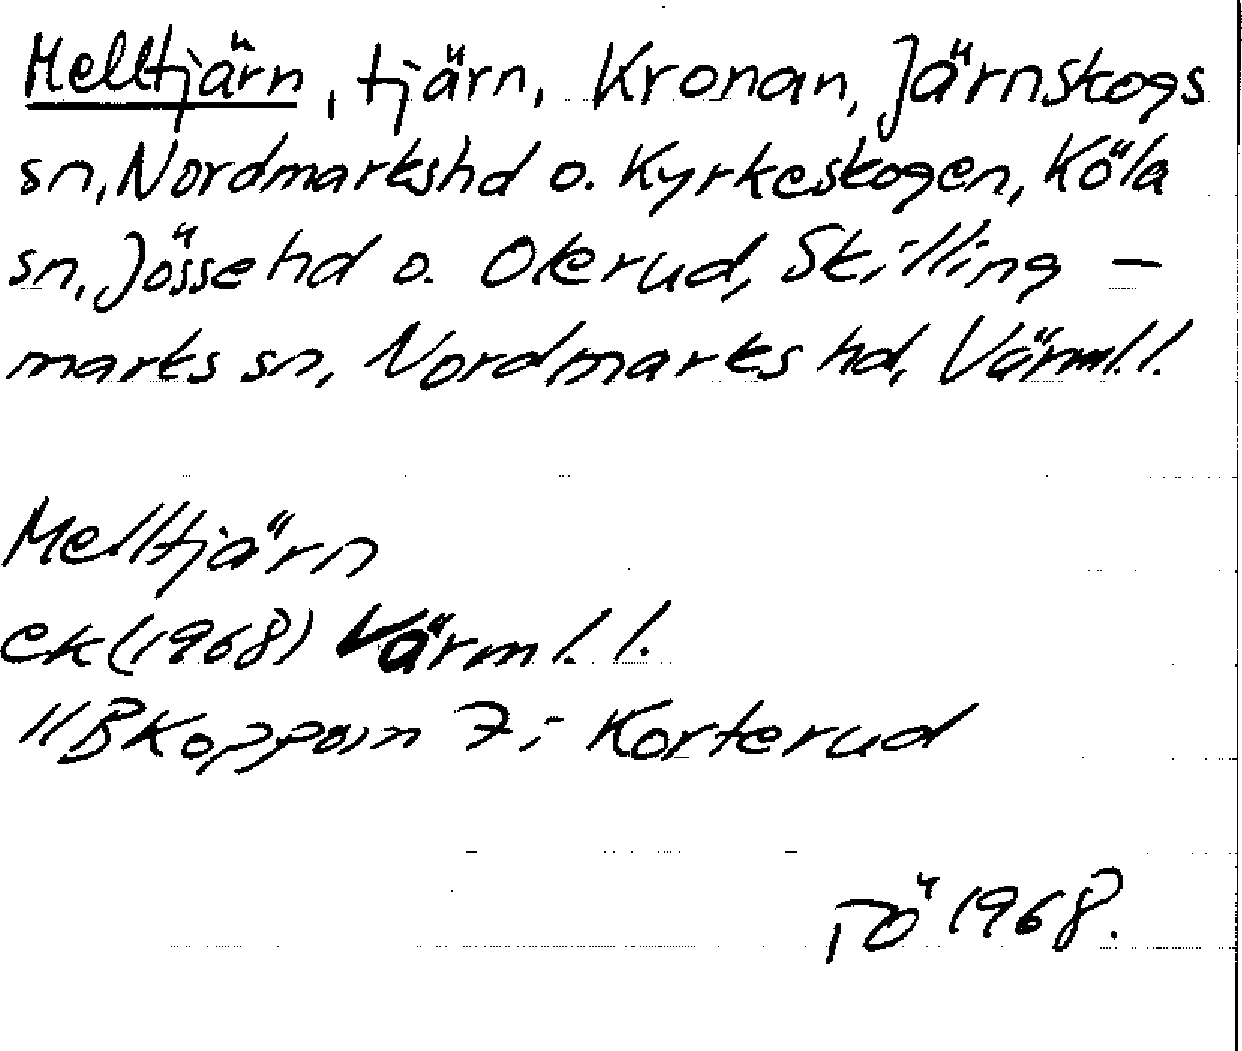 Melltjärn, tjärn, Kronan, Järnskogs
sn, Nordmarkshd o. Kyrkeskogen, Köla
sn, Jössehd o. Olerud, Skilling-
marks sn, Nordmarks hd, Värml.l.
Melltjärn
ek (1968) Värml.l.
11B Koppom 7i Korterud
TÖ 1968.